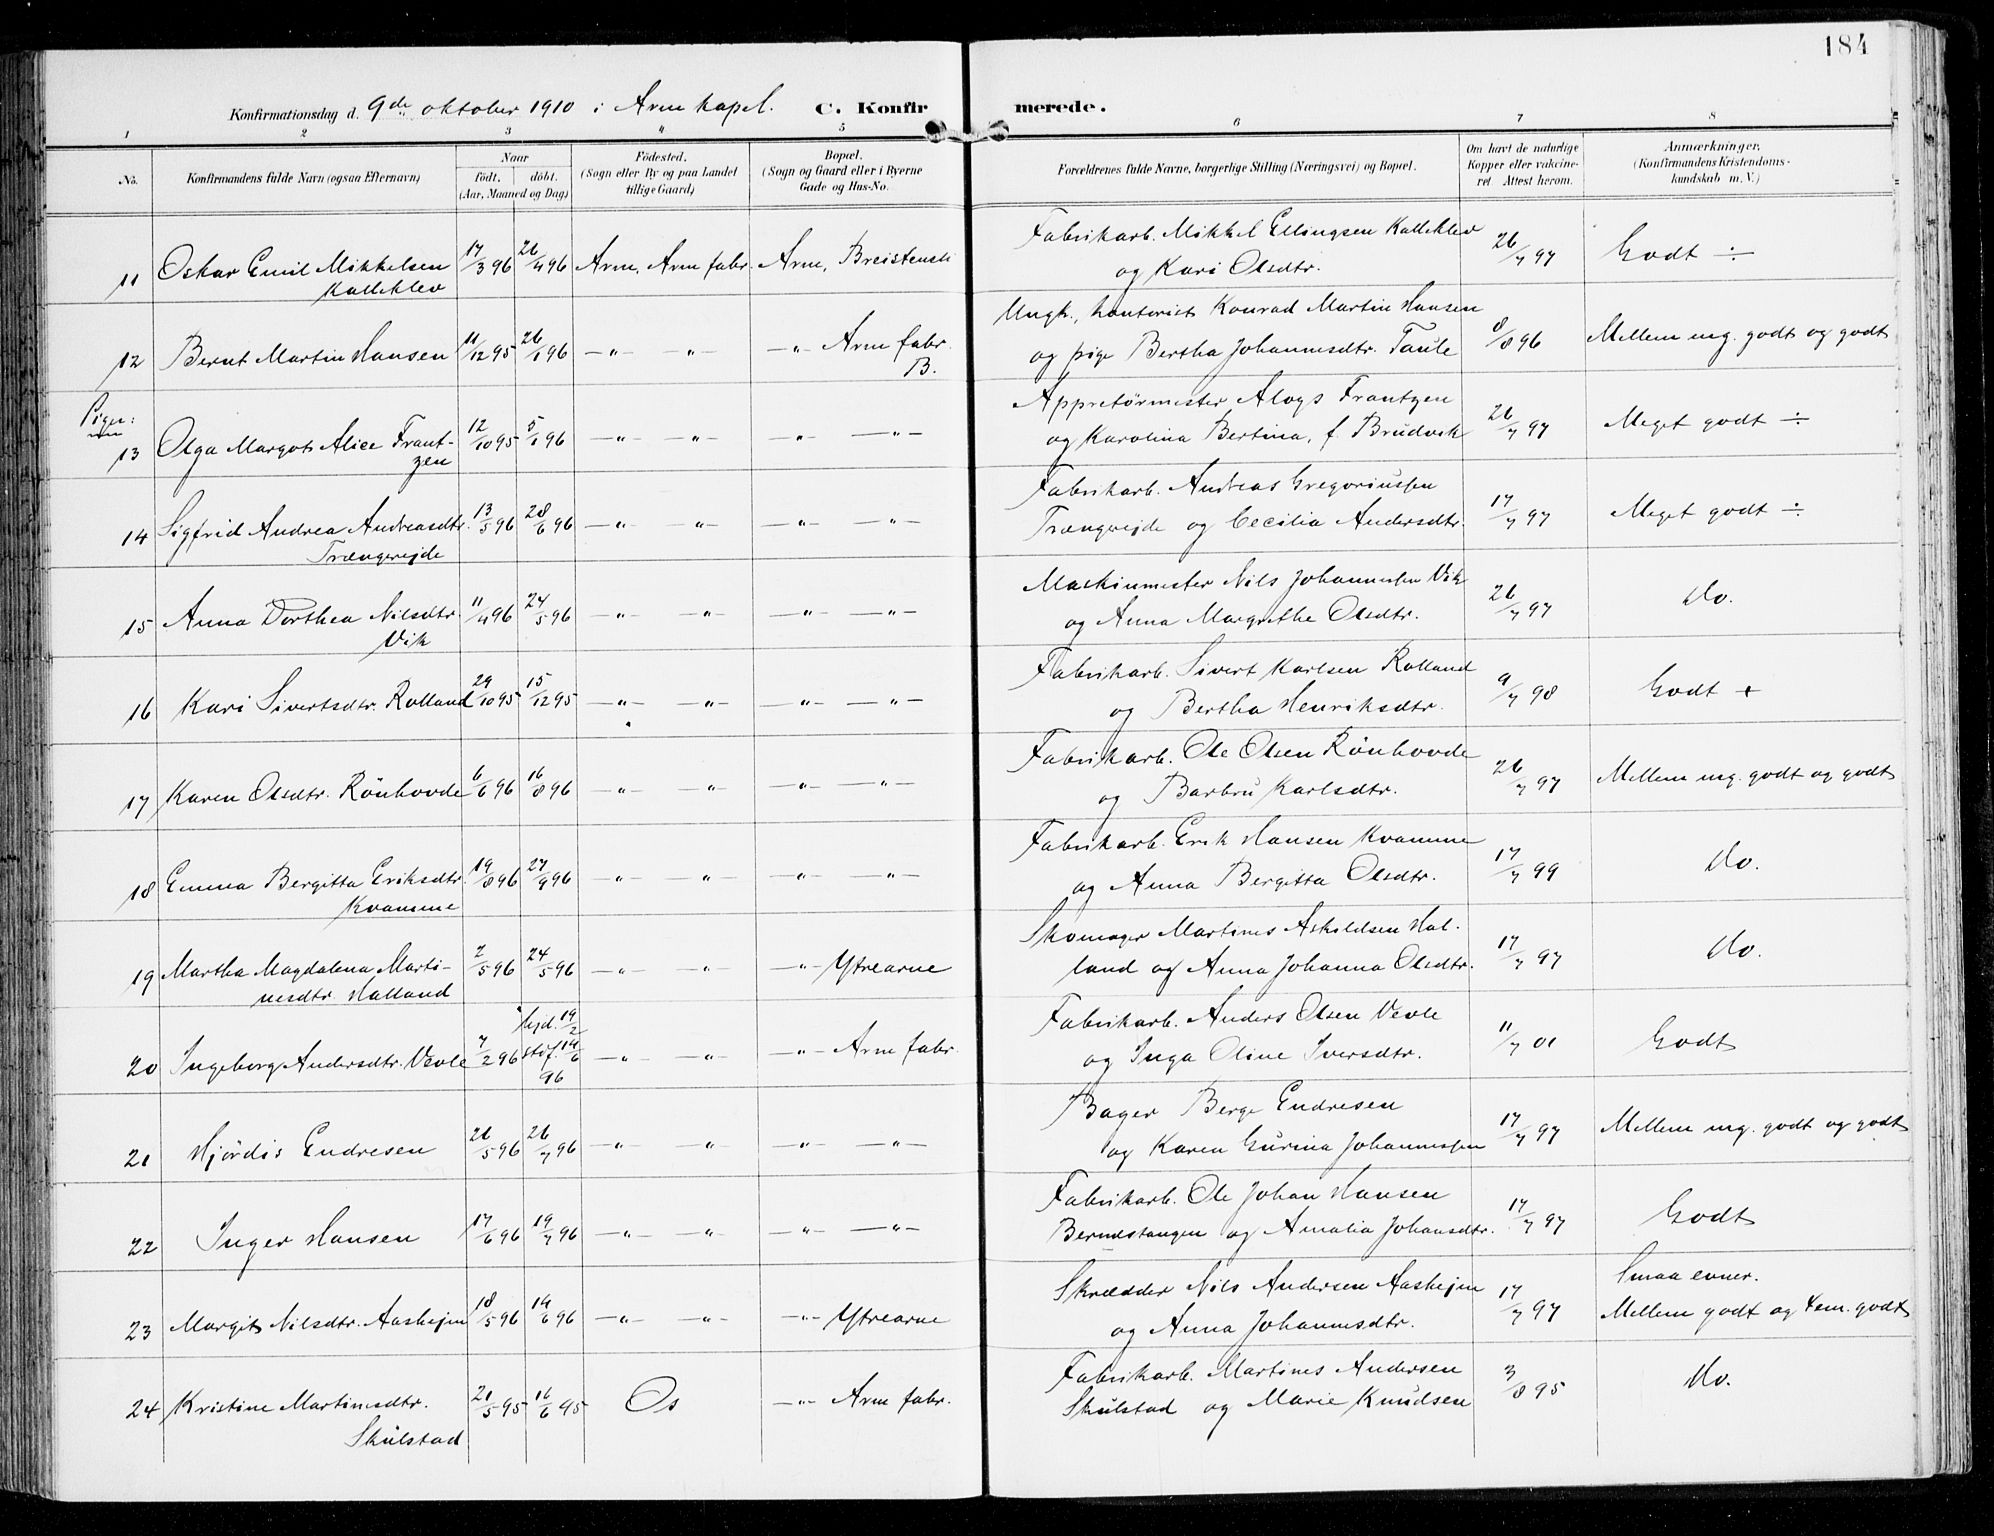 184
Konfirmationsdag d. 9de oktober 1910 i Arne kapel. C. Konfirmerede.
1 2 3 4 5 6 7 8
No. Konfirmandens fulde Navn (ogsaa Efternavn) Naar födt. döbt. (Aar, Maaned og Dag) Födested. (Sogn eller By og paa Landet tillige Gaard) Bopæl. (Sogn og Gaard eller i Byerne Gade og Hus-No. Forældrenes fulde Navne, borgerlige Stilling (Næringsvei) og Bopæl. Om havt de naturlige Kopper eller vakcineret. Attest herom. Anmærkninger. (Konfirmandens Kristendomskundskab m. V.)
11 Oskar Emil Mikkelsen Kalleklev 17/3 96 26/4 96 Arne, Arne fabr. Arne, Breistensli Fabrikarb. Mikkel Ellingsen Kalleklev og Kari Olsdtr. 26/7 97 Godt ÷
12 Bernt Martin Hansen 11/12 95 26/1 96 —"— —"— —"— Arne fabr. B. Ungk., kontorist Konrad Martin Hansen og pige Bertha Johannesdtr. Taule 8/8 96 Mellem mg. godt og godt
Piger:
13 Olga Margot Alice Frantzen 12/10 95 5/1 96 —"— —"— " —"— Appretörmester Aloys Frantzen og Karolina Bertina, f. Brudvik 26/7 97 Meget godt ÷
14 Sigfrid Andrea Andreasdtr. Trængereide 13/5 96 28/6 96 —"— —"— —"— —"— Fabrikarb. Andreas Gregoriussen Trængereide og Cecilia Andersdtr. 17/7 97 Meget godt ÷
15 Anna Dorthea Nilsdtr. Vik 11/4 96 24/5 96 —"— —"— —"— —"— Maskinmester Nils Johannessen Vik og Anna Margrethe Olsdtr. 26/7 97 do.
16 Kari Sivertsdtr. Rolland 29/10 95 15/12 95 —"— —"— —"— —"— Fabrikarb. Sivert Karlsen Rolland og Bertha Henriksdtr. 9/7 98 Godt +
17 Karen Olsdtr. Rönhovde 6/6 96 16/8 96 —"— —"— —"— —"— Fabrikarb. Ole Olsen Rönhovde og Barbru Karlsdtr. 26/7 97 Mellem mg. godt og godt
18 Emma Bergitta Eriksdtr. Kvamme 19/8 96 27/9 96 —"— —"— —"— —"— Fabrikarb. Erik Hansen Kvamme og Anna Bergitta Olsdtr. 17/7 99 do.
19 Martha Magdalena Martinesdtr. Halland 2/5 96 24/5 96 —"— —"— —"— Ytrearne Skomager Martines Askildsen Halland og Anna Johanna Olsdtr. 17/7 97 do.
20 Ingeborg Andersdtr. Vevle 7/2 96 hjd. 19/2 stdf. 14/6 96 —"— —"— —"— Arne fabr. Fabrikarb. Anders Olsen Vevle og Inga Oline Iversdtr. 11/7 01 Godt
21 Hjördis Endresen 26/5 96 26/7 96 —"— —"— —"— —"— Bager Berge Endresen og Karen Gurina Johannessen 17/7 97 Mellem mg. godt og godt
22 Inger Hansen 17/6 96 19/7 96 —"— —"— —"— —"— Fabrikarb. Ole Johan Hansen Berndstangen og Amalia Johansdtr. 17/7 97 Godt
23 Margit Nilsdtr. Aashejm 18/5 96 14/6 96 —"— —"— —"— Ytrearne Skrædder Nils Andersen Aashejm og Anna Johannesdtr. 17/7 97 Smaa evner. Mellem godt og tem. godt
24 Kristine Martinesdtr. Skulstad 21/5 95 16/6 95 Os —"— Arne fabr. Fabrikarb. Martines Andersen Skulstad og Marie Knudsen 3/8 95 do.